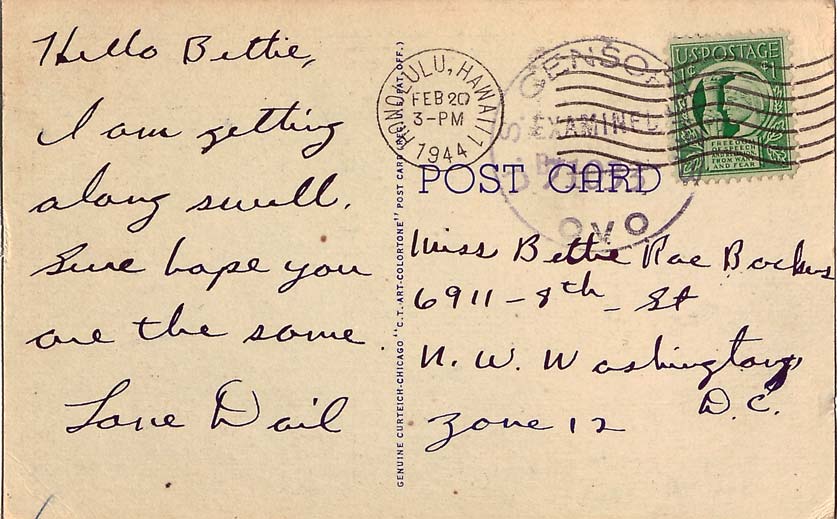 Hello Bettie,
I am getting
along swell.
Sure hope you
are the same
Love Dail
GENUINE CURTEICH-CHICAGO "C.T. ART-COLORTONE" POST CARD (REG. U.S. PAT. OFF.)
HONOLULU, HAWAII
FEB 20
3-PM
1944
U.S. CENSOR
EXAMINED
U.S. POSTAGE
1¢ 1¢
FREEDOM
OF SPEECH
AND RELIGION,
FROM WANT
AND FEAR
POST CARD
Miss Bettie Rae
6911-8th St
N. W. Washington,
D.C.
Zone 12